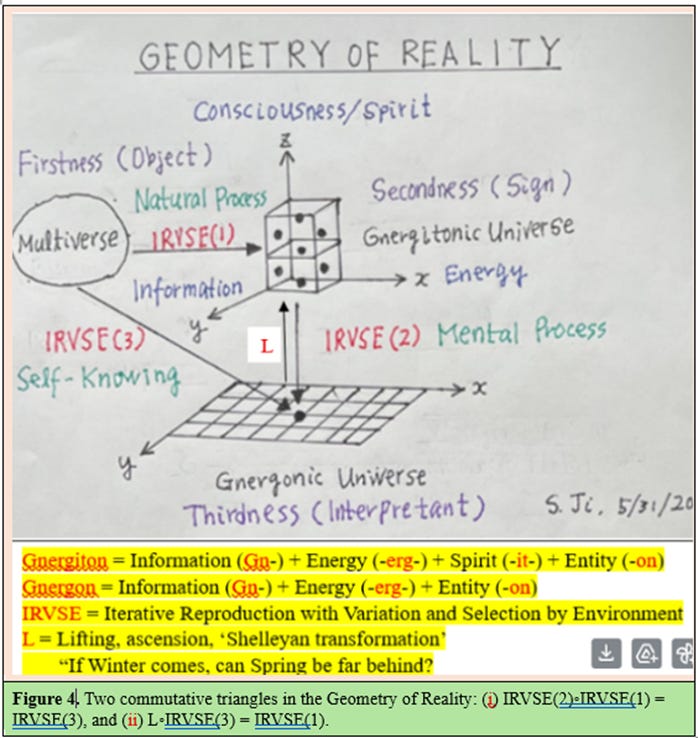 GEOMETRY OF REALITY
Consciousness/Spirit
Firstness (Object)
z
Natural Process
Secondness (Sign)
Multiverse
IRVSE(1)
Gnergitonic Universe
x Energy
Information
y
IRVSE(3)
L
IRVSE(2) Mental Process
Self-Knowing
x
y
Gnergonic Universe
Thirdness (Interpretant)
S. Ji, 5/31/20
Gnergiton = Information (Gn-) + Energy (-erg-) + Spirit (-it-) + Entity (-on)
Gnergon = Information (Gn-) + Energy (-erg-) + Entity (-on)
IRVSE = Iterative Reproduction with Variation and Selection by Environment
L = Lifting, ascension, ‘Shelleyan transformation’
“If Winter comes, can Spring be far behind?
Figure 4. Two commutative triangles in the Geometry of Reality: (i) IRVSE(2)∘IRVSE(1) =
IRVSE(3), and (ii) L∘IRVSE(3) = IRVSE(1).